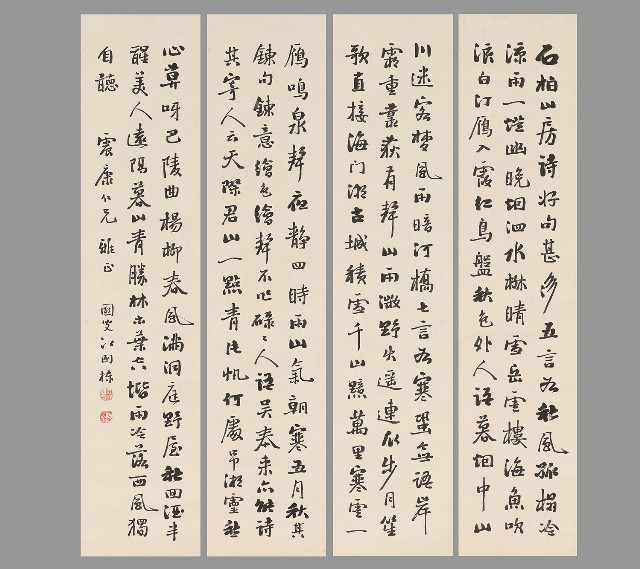 石柏山房詩好句甚多五言如秋風孤榻冷
涼雨一燈幽晚烟泗水樹晴雪岳雲樓海魚吹
浪白汀雁入霞紅鳥盤秋色外人語暮烟中山
川迷客夢風雨暗河橋七言如寒蛩無語岸
霜重荻有聲山雨微野火遥連步月笙
歌直接海門潮古城積雪千山黯萬里寒雲一
雁鳴泉聲夜靜四時雨山氣朝寒五月秋其
鍊句鍊意繪色繪聲不作碌碌人語吳奉來亦能詩
其寄人云天際君山一點青片帆何處弔湘靈秋
心莫唱巴陵曲楊柳春風滿洞庭野屋秋回酒半
醒美人遠隔暮山青勝林木葉空堦雨冷落西風獨
自聽 震康仁兄 雅正 江國棟